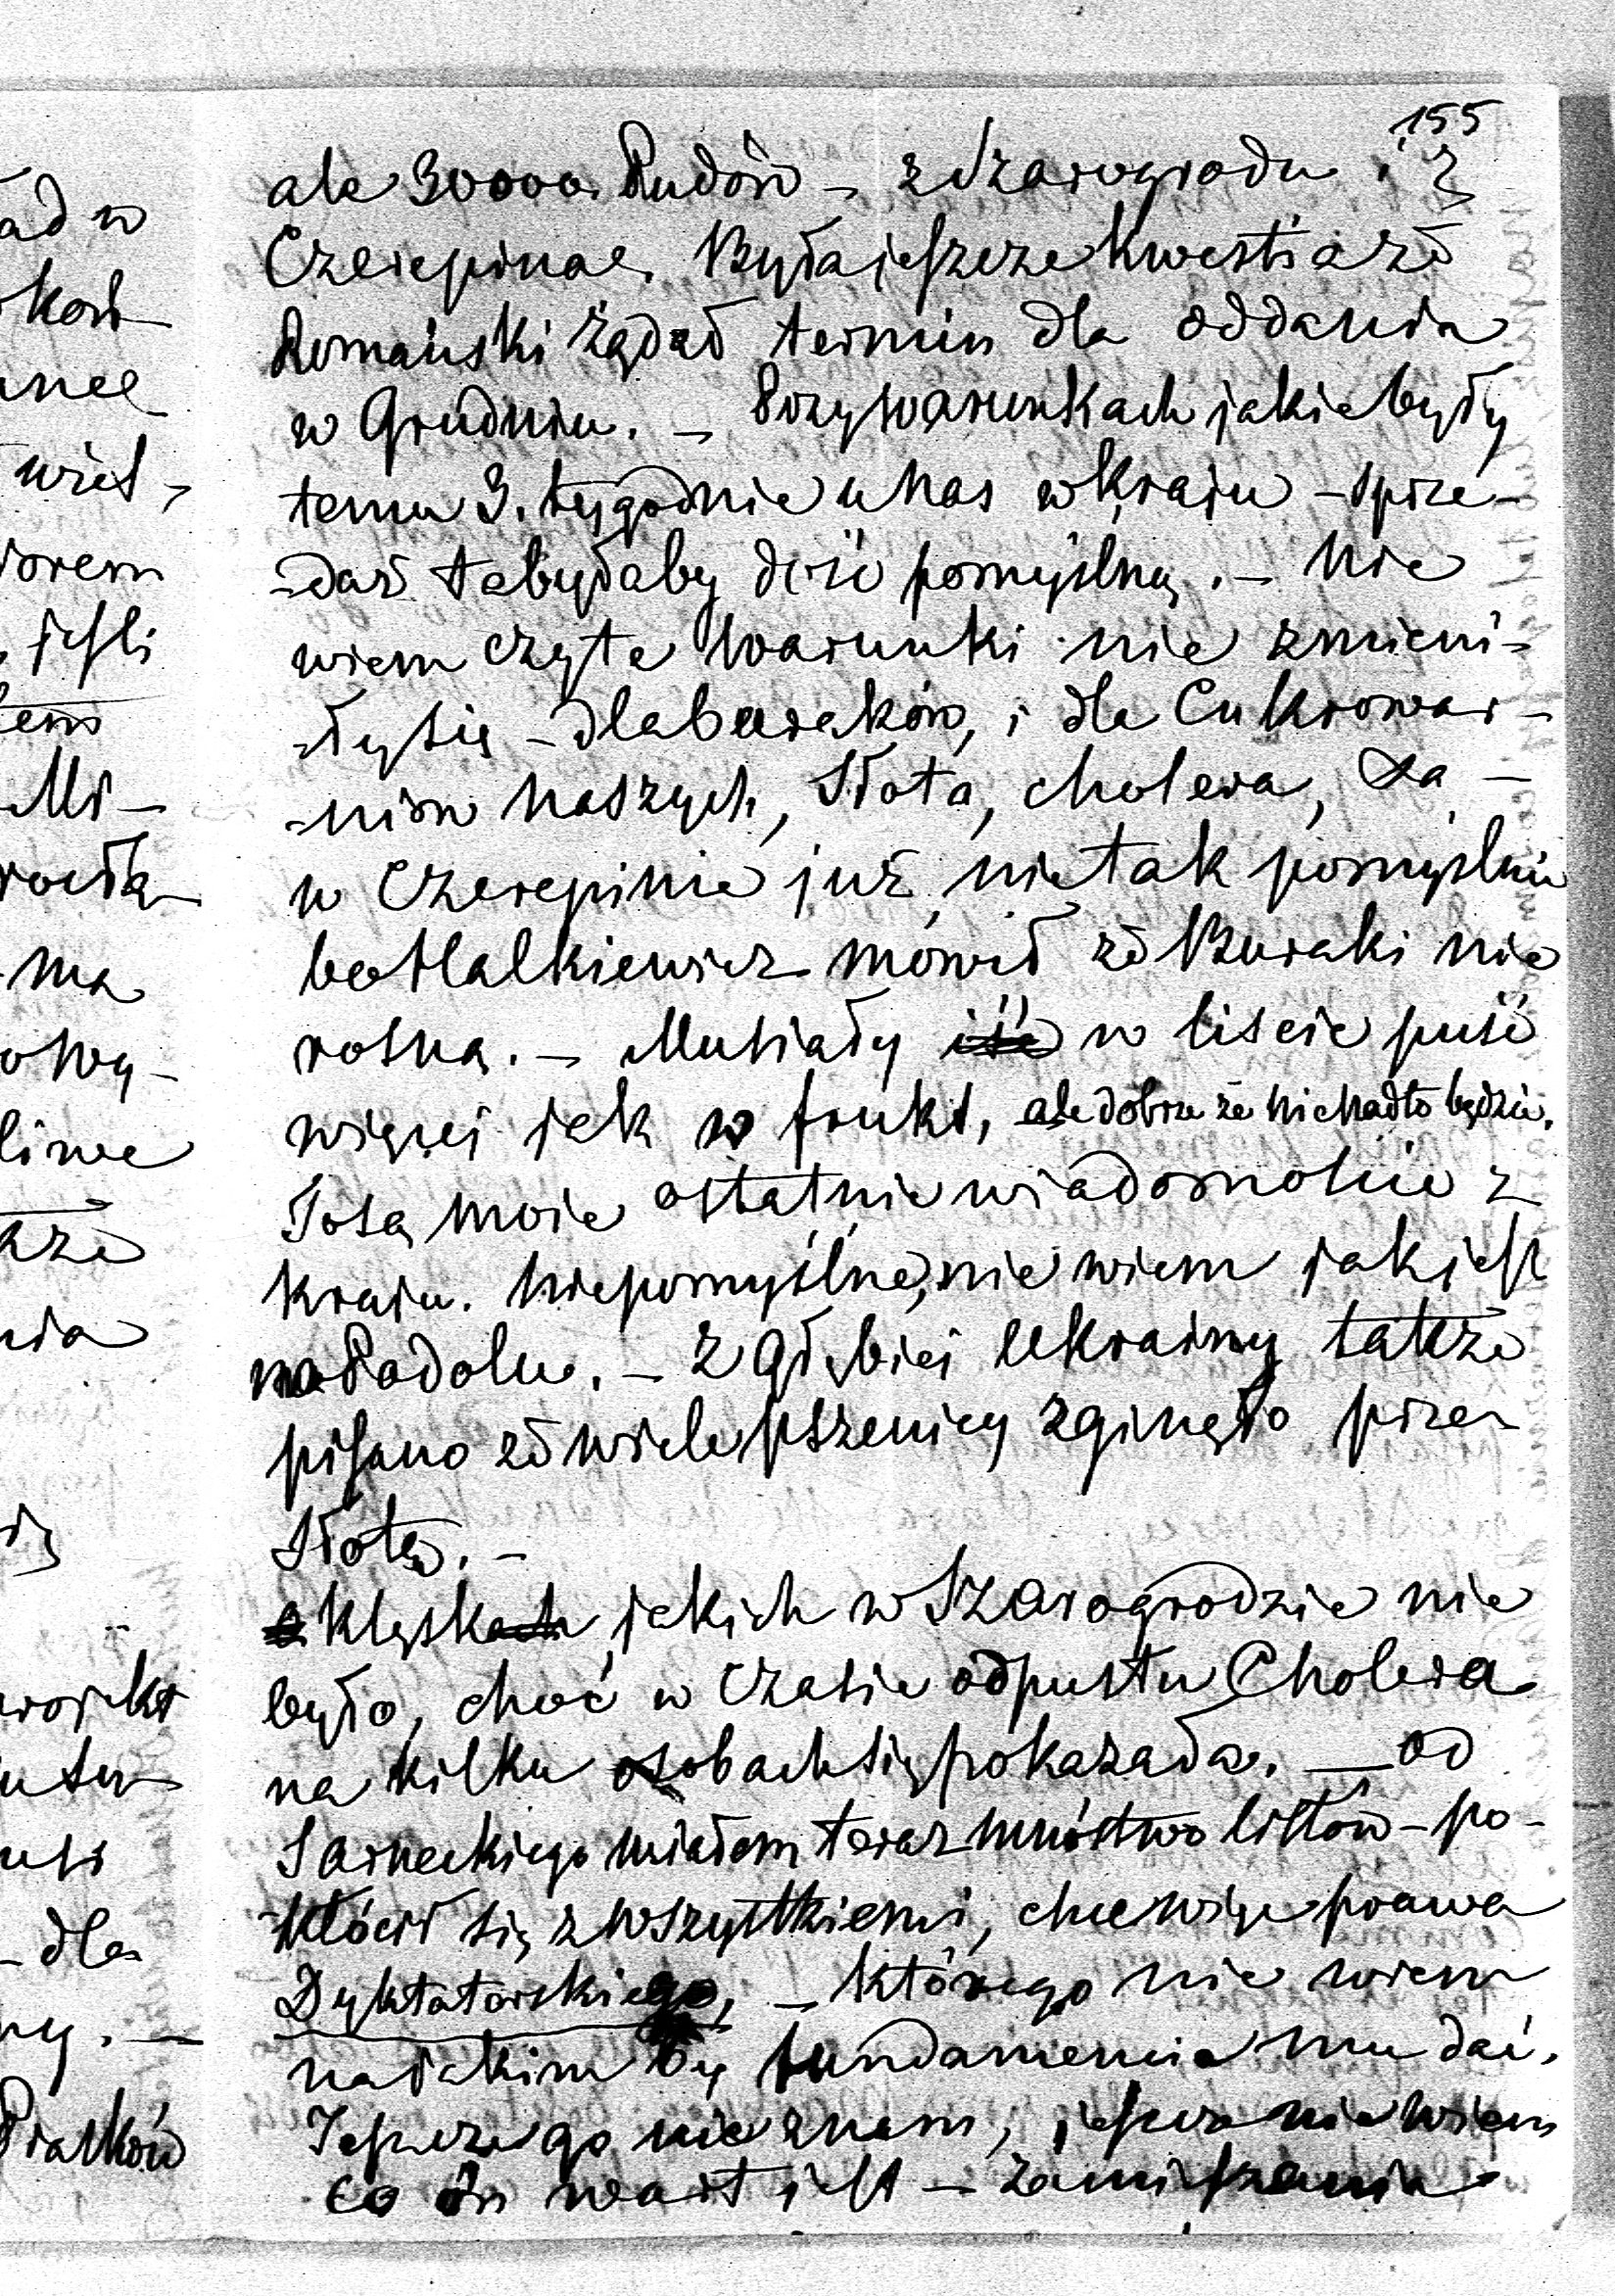 155
ale 30000. Pudów – z Szarogrodu i z
Czerepina. Była jeszcze kwestia że
Romański żądał termin dla oddania
w Grudniu. – Przy warunkach jakie były
temu 3. tygodnie u nas w kraju – sprze-
-daż ta byłaby dość pomyślną. – Nie
wiem czy te warunki nie zmieni-
-ły się – dla buraków, i dla Cukrowar-
-niów naszych, Słota, cholera, &a –
w Czerepinie już nie tak pomyślnie
bo Halkiewicz mówił że Buraki nie
rosną. – Musiały iść w liście puść
więcej jak w frukt, ale dobrze że nie nadto będzie.
To są moie ostatnie wiadomoście z
kraiu. Niepomyślne, nie wiem jak jest
na Podolu. – Z Głębiei Ukrainy także
pisano że wiele pszenicy zginęło przez
Słotę. –
o klęskach jakich w Szarogrodzie nie
było, choć w czasie odpustu Cholera
na kilku osobach się pokazała. – Od
Sarneckiego miałem teraz mnóstwo listów – po-
-kłócił się z wszystkiemi, chce więc prawa
Dyktatorskiego, – którego nie wiem
na jakim by fundamencie mu dać.
Jeszcze go nie znam, jeszcze nie wiem
co ón wart jest – zamieszania
ad w
wiel,
orem
jesli
Mi-
ma
owy-
liwe
nia
dla
ny. –